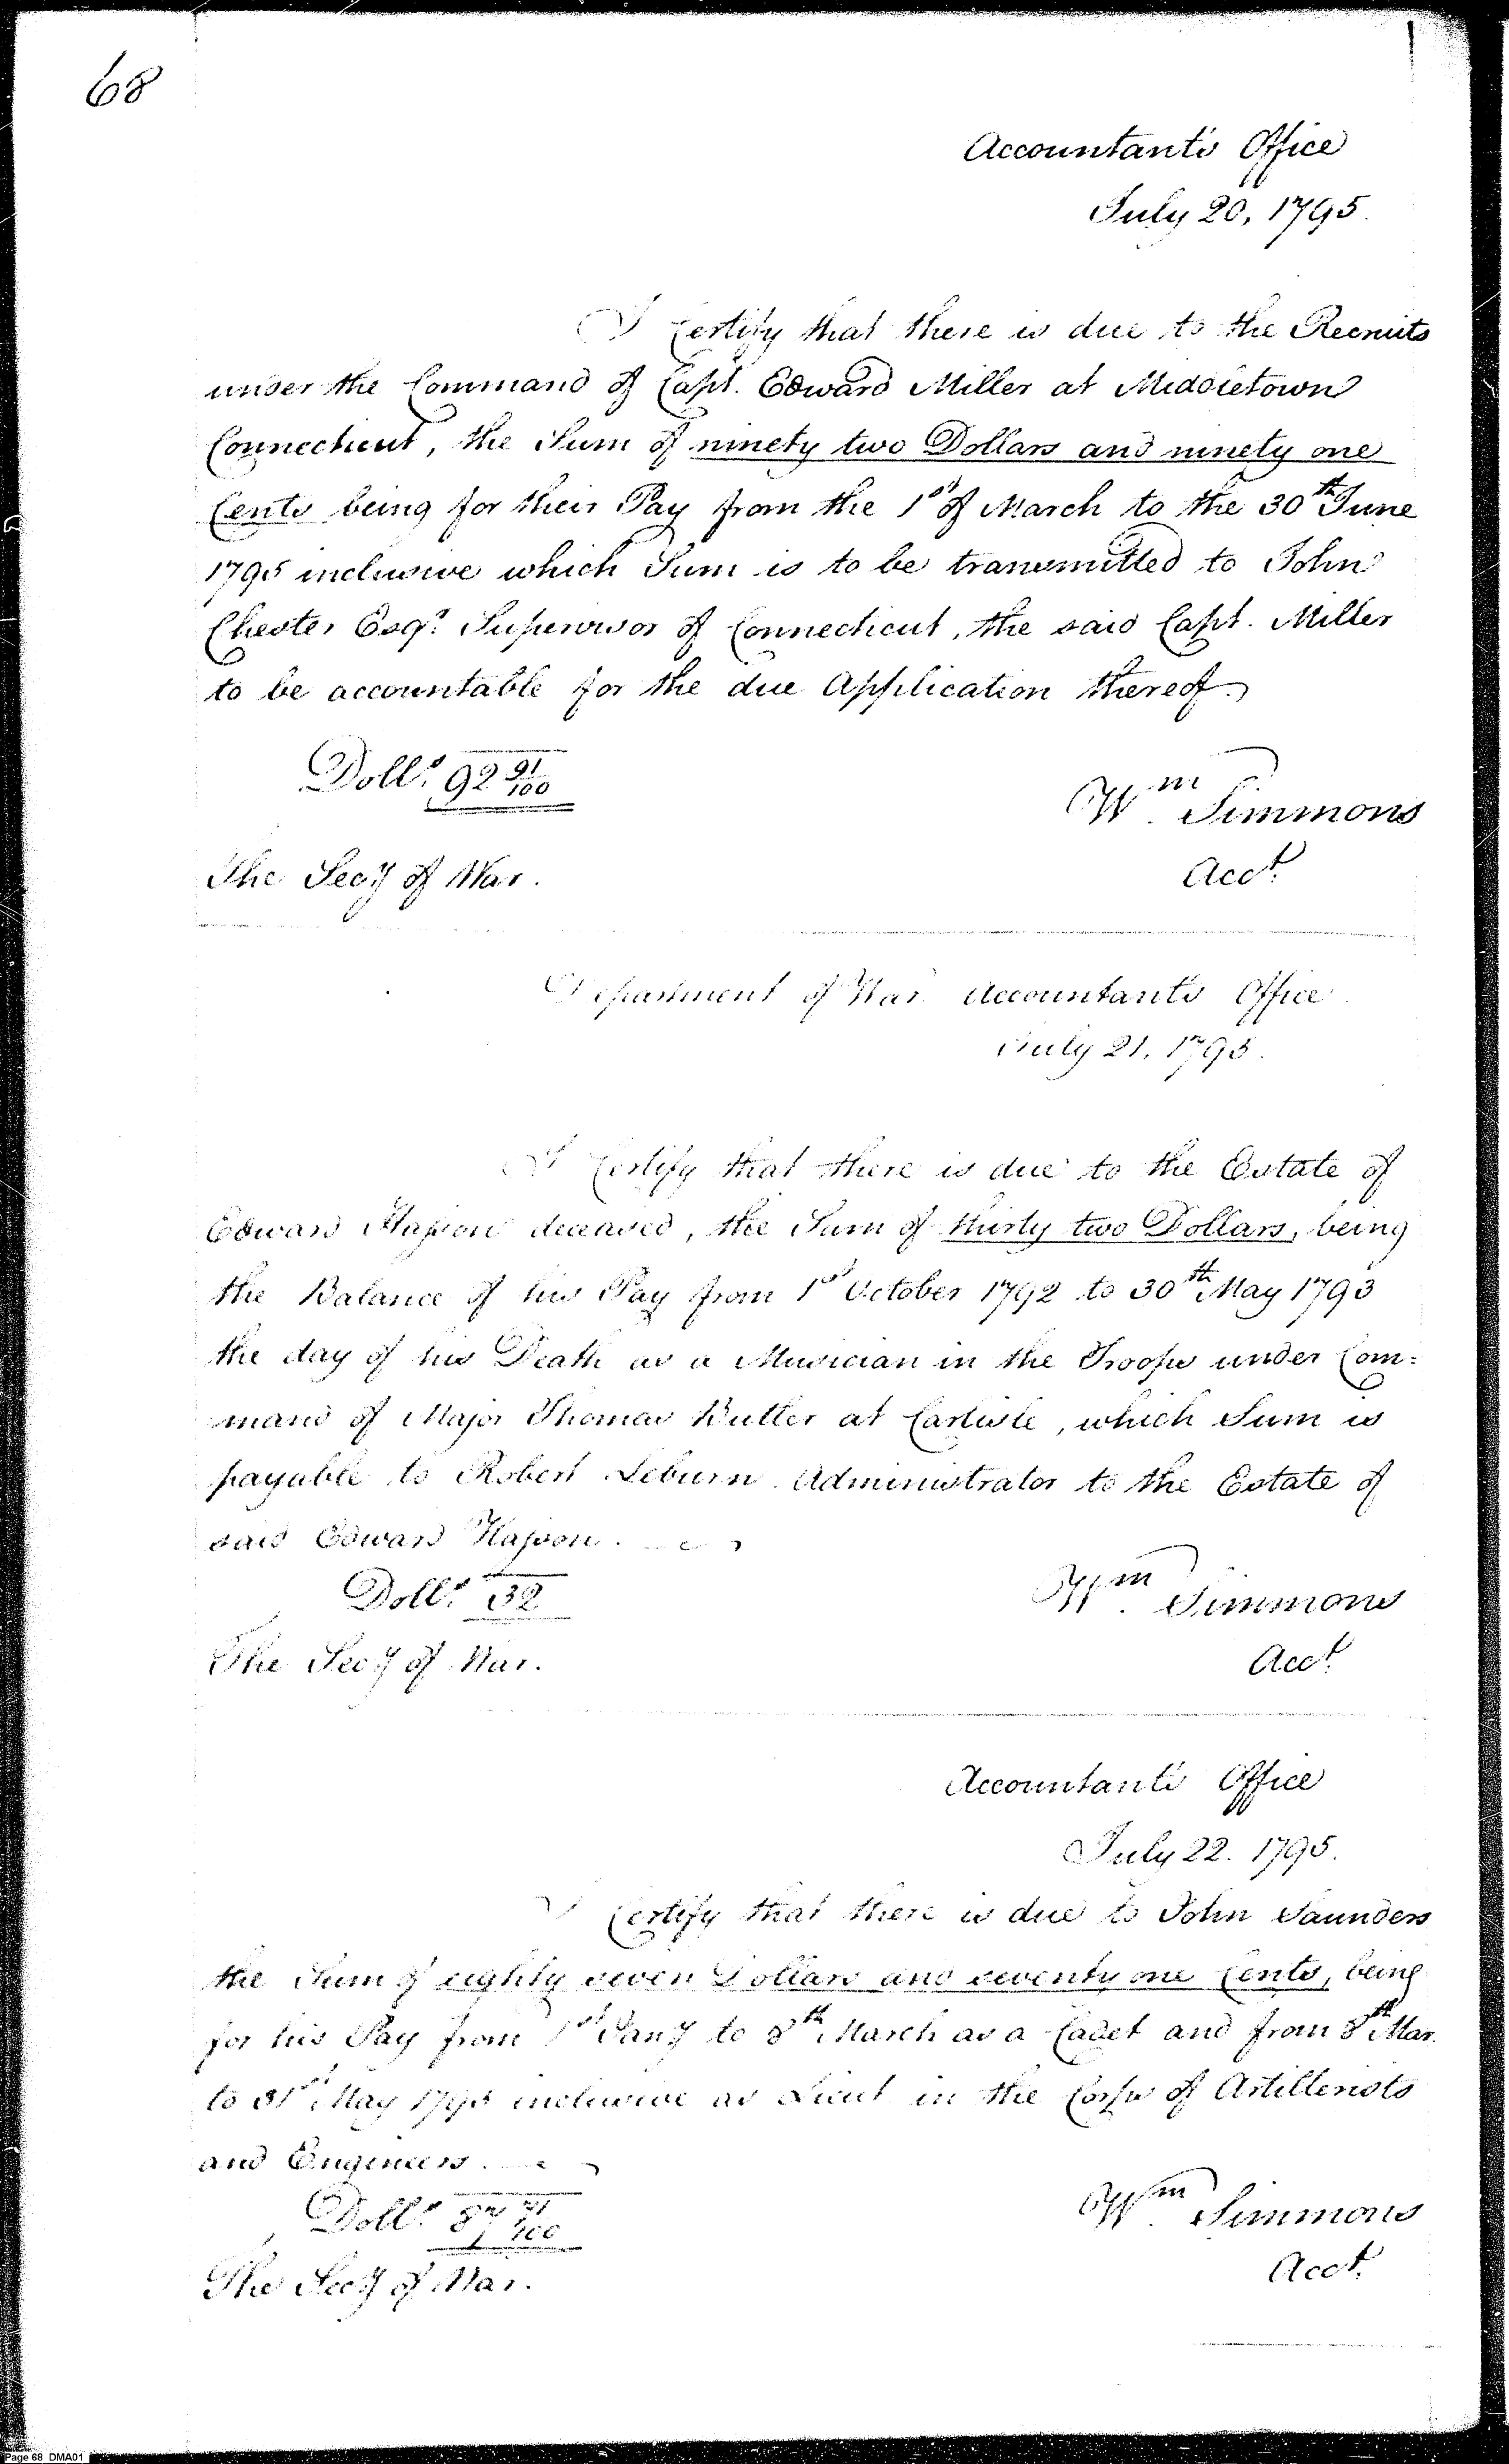 68
Accountant's Office
July 20, 1795.
I Certify that there is due to the Recruits
under the Command of Capt. Edward Miller at Middletown
Connecticut, the Sum of ninety two Dollars and ninety one
Cents being for their Pay from the 1st of March to the 30th June
1795 inclusive which Sum is to be transmitted to John
Chester Esqr. Supervisor of Connecticut, the said Capt. Miller
to be accountable for the due Application thereof.
Dolls. 92 91/100
Wm. Simmons
The Secy of War.
Acct.
Department of War Accountant's Office
July 21, 1795.
I Certify that there is due to the Estate of
Edward deceased, the Sum of thirty two Dollars, being
the Balance of his Pay from 1st October 1792 to 30th May 1793
the day of his Death as a Musician in the Troops under Com=
mand of Major Thomas Butler at Carlisle, which Sum is
payable to Robert Leburn Administrator to the Estate of
said Edward
Dolls. 32
Wm. Simmons
The Secy of War.
Acct.
Accountant's Office
July 22. 1795.
I Certify that there is due to John Saunders
the Sum of eighty seven Dollars and seventy one Cents, being
for his Pay from 1st Jany to 8th March as a Cadet and from 8th Mar.
to 31st May 1795 inclusive as Lieut in the Corps of Artillerists
and Engineers.
Dolls. 87 71/100
Wm. Simmons
The Secy of War.
Acct.
Page 68 DMA01